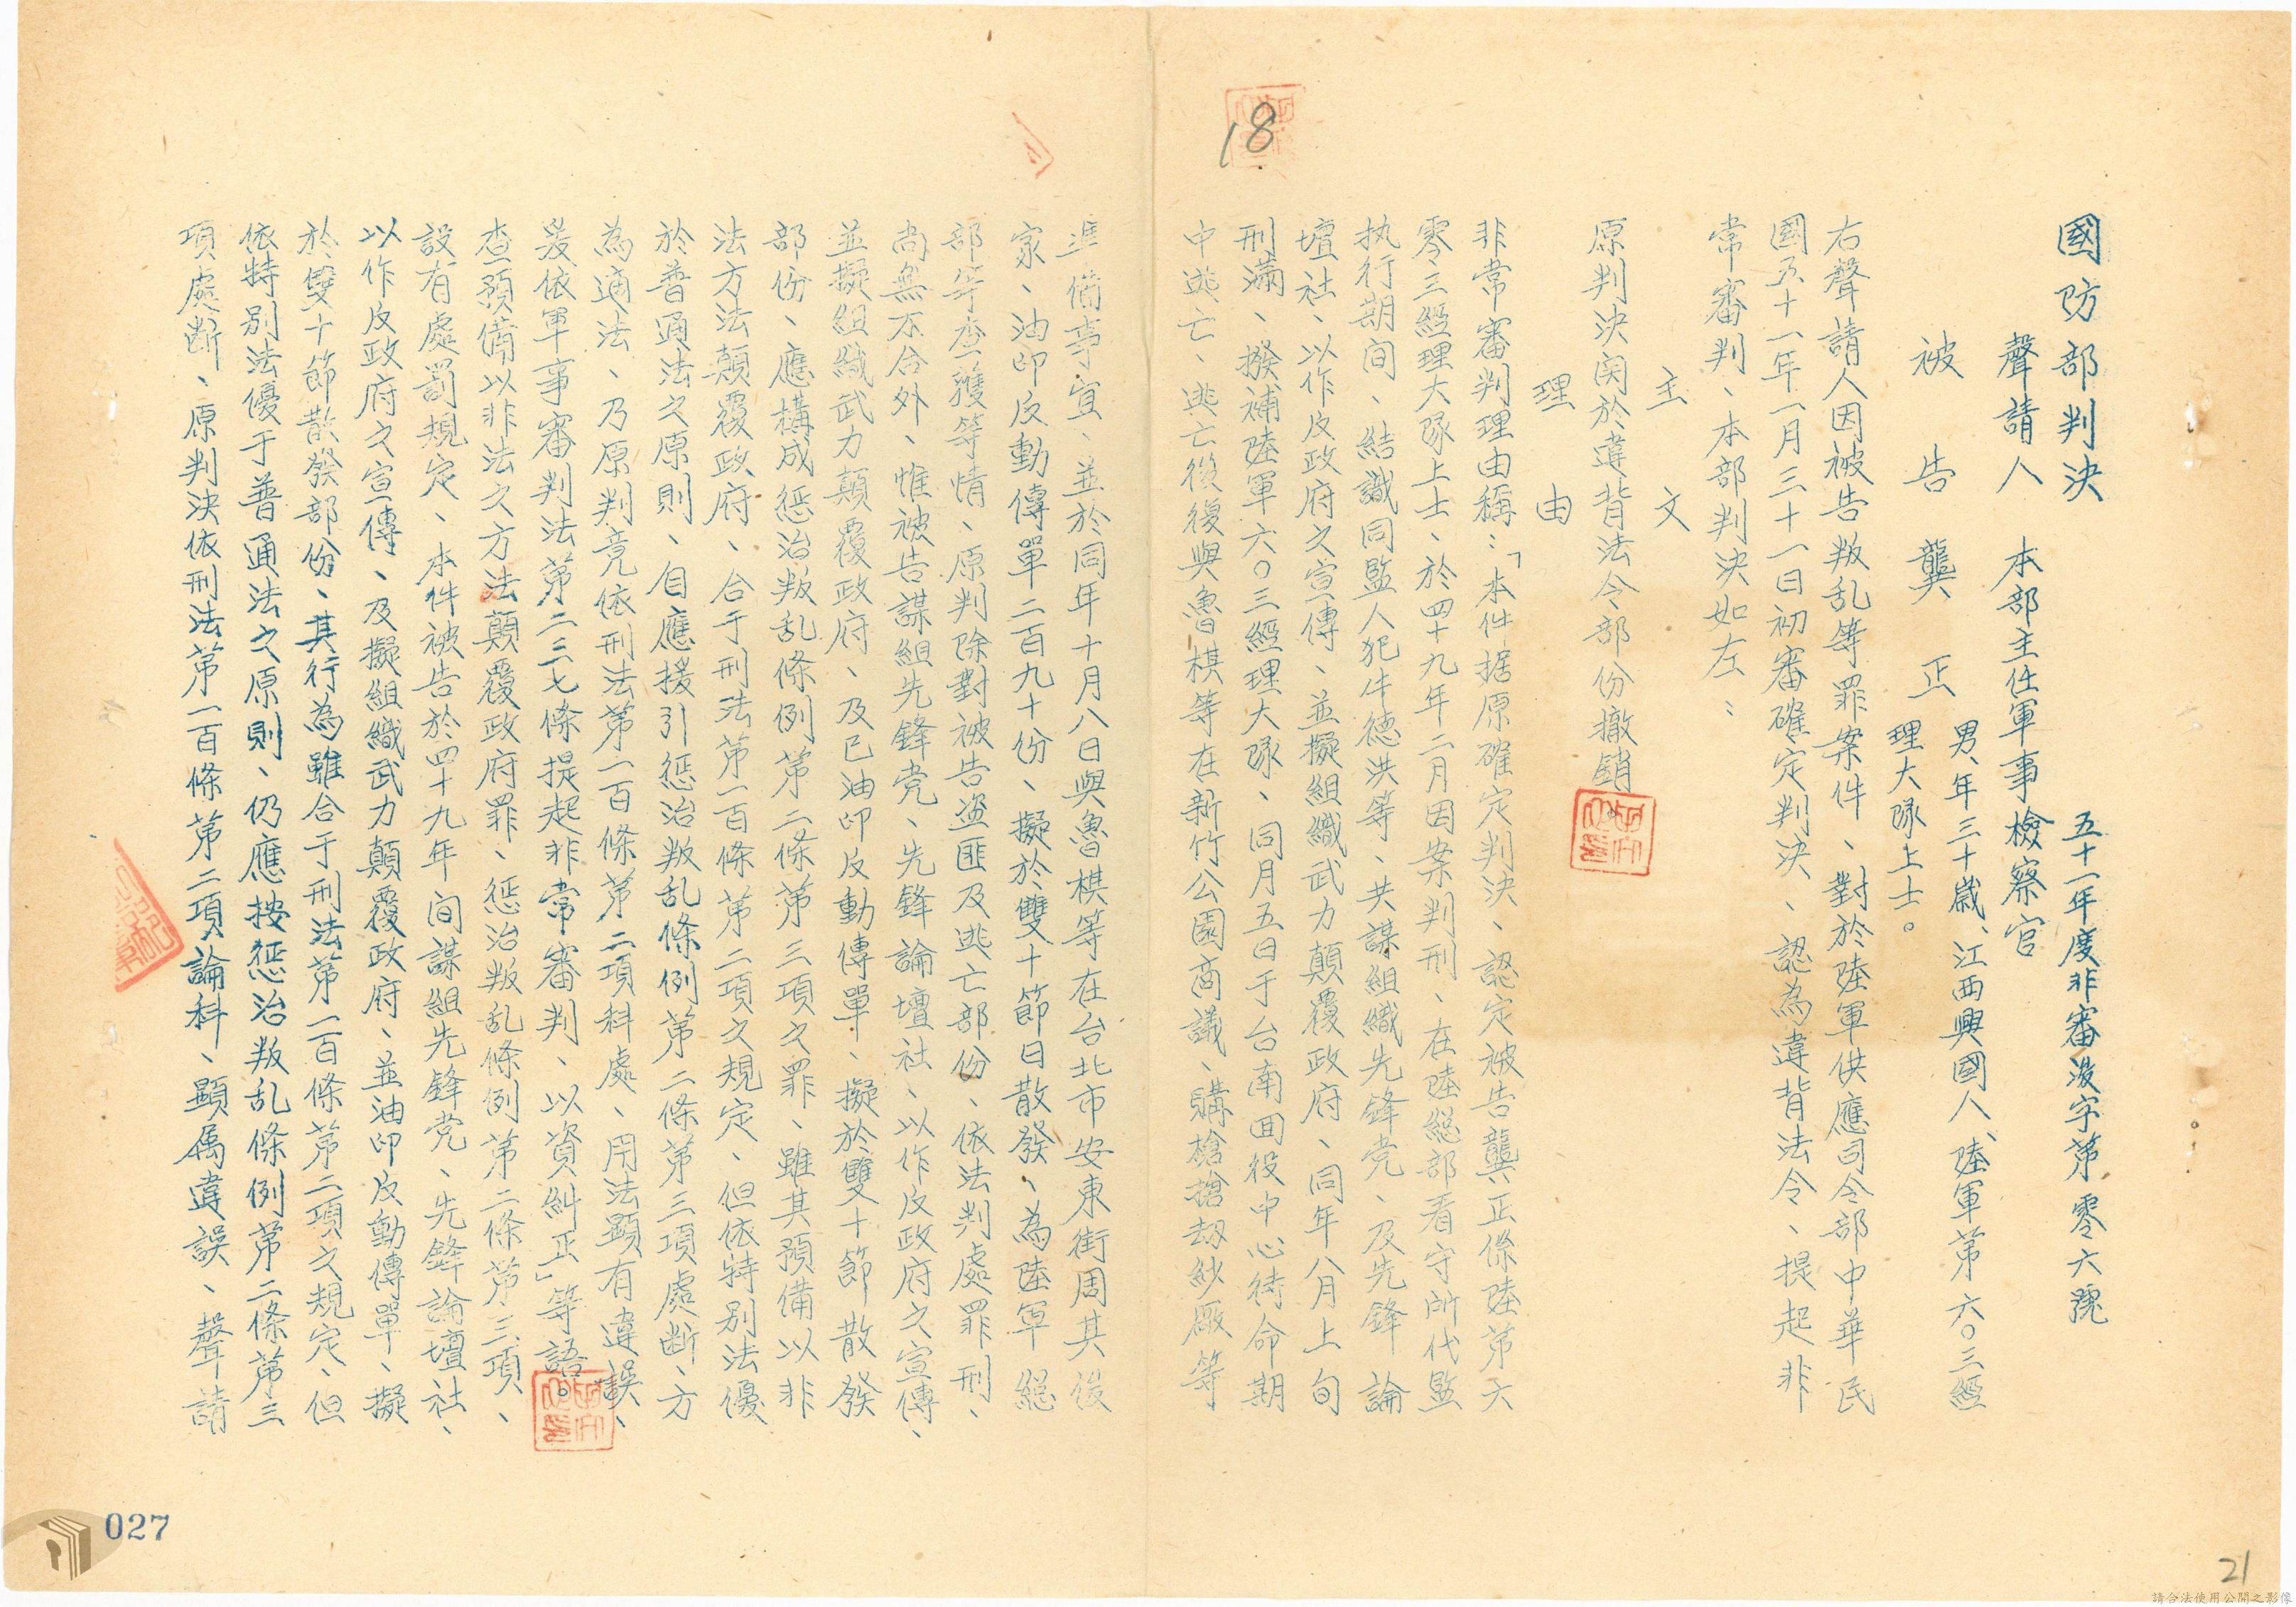 國防部判決
五十一年度非審漢字第零六號
聲請人　本部主任軍事檢察官
被告　龔正　男、年三十歲、江西興國人、陸軍第六〇三經
理大隊上士。
右聲請人因被告叛乱等罪案件、對於陸軍供應司令部中華民
國五十一年一月三十一日初審確定判決、認為違背法令、提起非
常審判、本部判決如左：
主文
原判決関於違背法令部份撤銷
理由
非常審判理由稱：「本件据原確定判決、認定被告龔正係陸第六
零三經理大隊上士、於四十九年二月因案判刑、在陸總部看守所代監
执行期间、結識同監人犯牛德洪等、共謀組織先鋒党、及先鋒論
壇社、以作反政府之宣傳、並擬組織武力顛覆政府、同年八月上旬
刑滿、撥補陸軍六〇三經理大隊、同月五日于台南回役中心待命期
中逃亡、逃亡後復與魯棋等在新竹公園商議、購槍搶劫紗廠等
準備事宜、並於同年十月八日與魯棋等在台北市安東街周其俊
家、油印反動傳單二百九十份、擬於雙十節日散發、為陸軍總
部牢查獲等情、原判除對被告盜匪及逃亡部份、依法判處罪刑、
尚無不合外、惟被告謀組先鋒党、先鋒論壇社、以作反政府之宣傳、
並擬組織武力顛覆政府、及已油印反動傳單、擬於雙十節散發
部份、應構成惩治叛乱條例第二條第三項之罪、雖其預備以非
法方法顛覆政府、合于刑法第一百條第二項之規定、但依特別法優
於普通法之原則、自應援引惩治叛乱條例第二條第三項處断、方
為適法、乃原判竟依刑法第一百條第二項科處、用法顯有違誤、
爰依軍事審判法第二二七條提起非常審判、以資糾正」等語。
查預備以非法之方法顛覆政府罪、惩治叛乱條例第二條第三項、
設有處罰規定、本件被告於四十九年间謀組先鋒党、先鋒論壇社、
以作反政府之宣傳、及擬組織武力顛覆政府、並油印反動傳單、擬
於雙十節散發部份、其行為雖合于刑法第一百條第二項之規定、但
依特別法優于普通法之原則、仍應按惩治叛乱條例第二條第三
項處断、原判決依刑法第一百條第二項論科、顯属違誤、聲請
18
027
21
請合法使用公開之影像